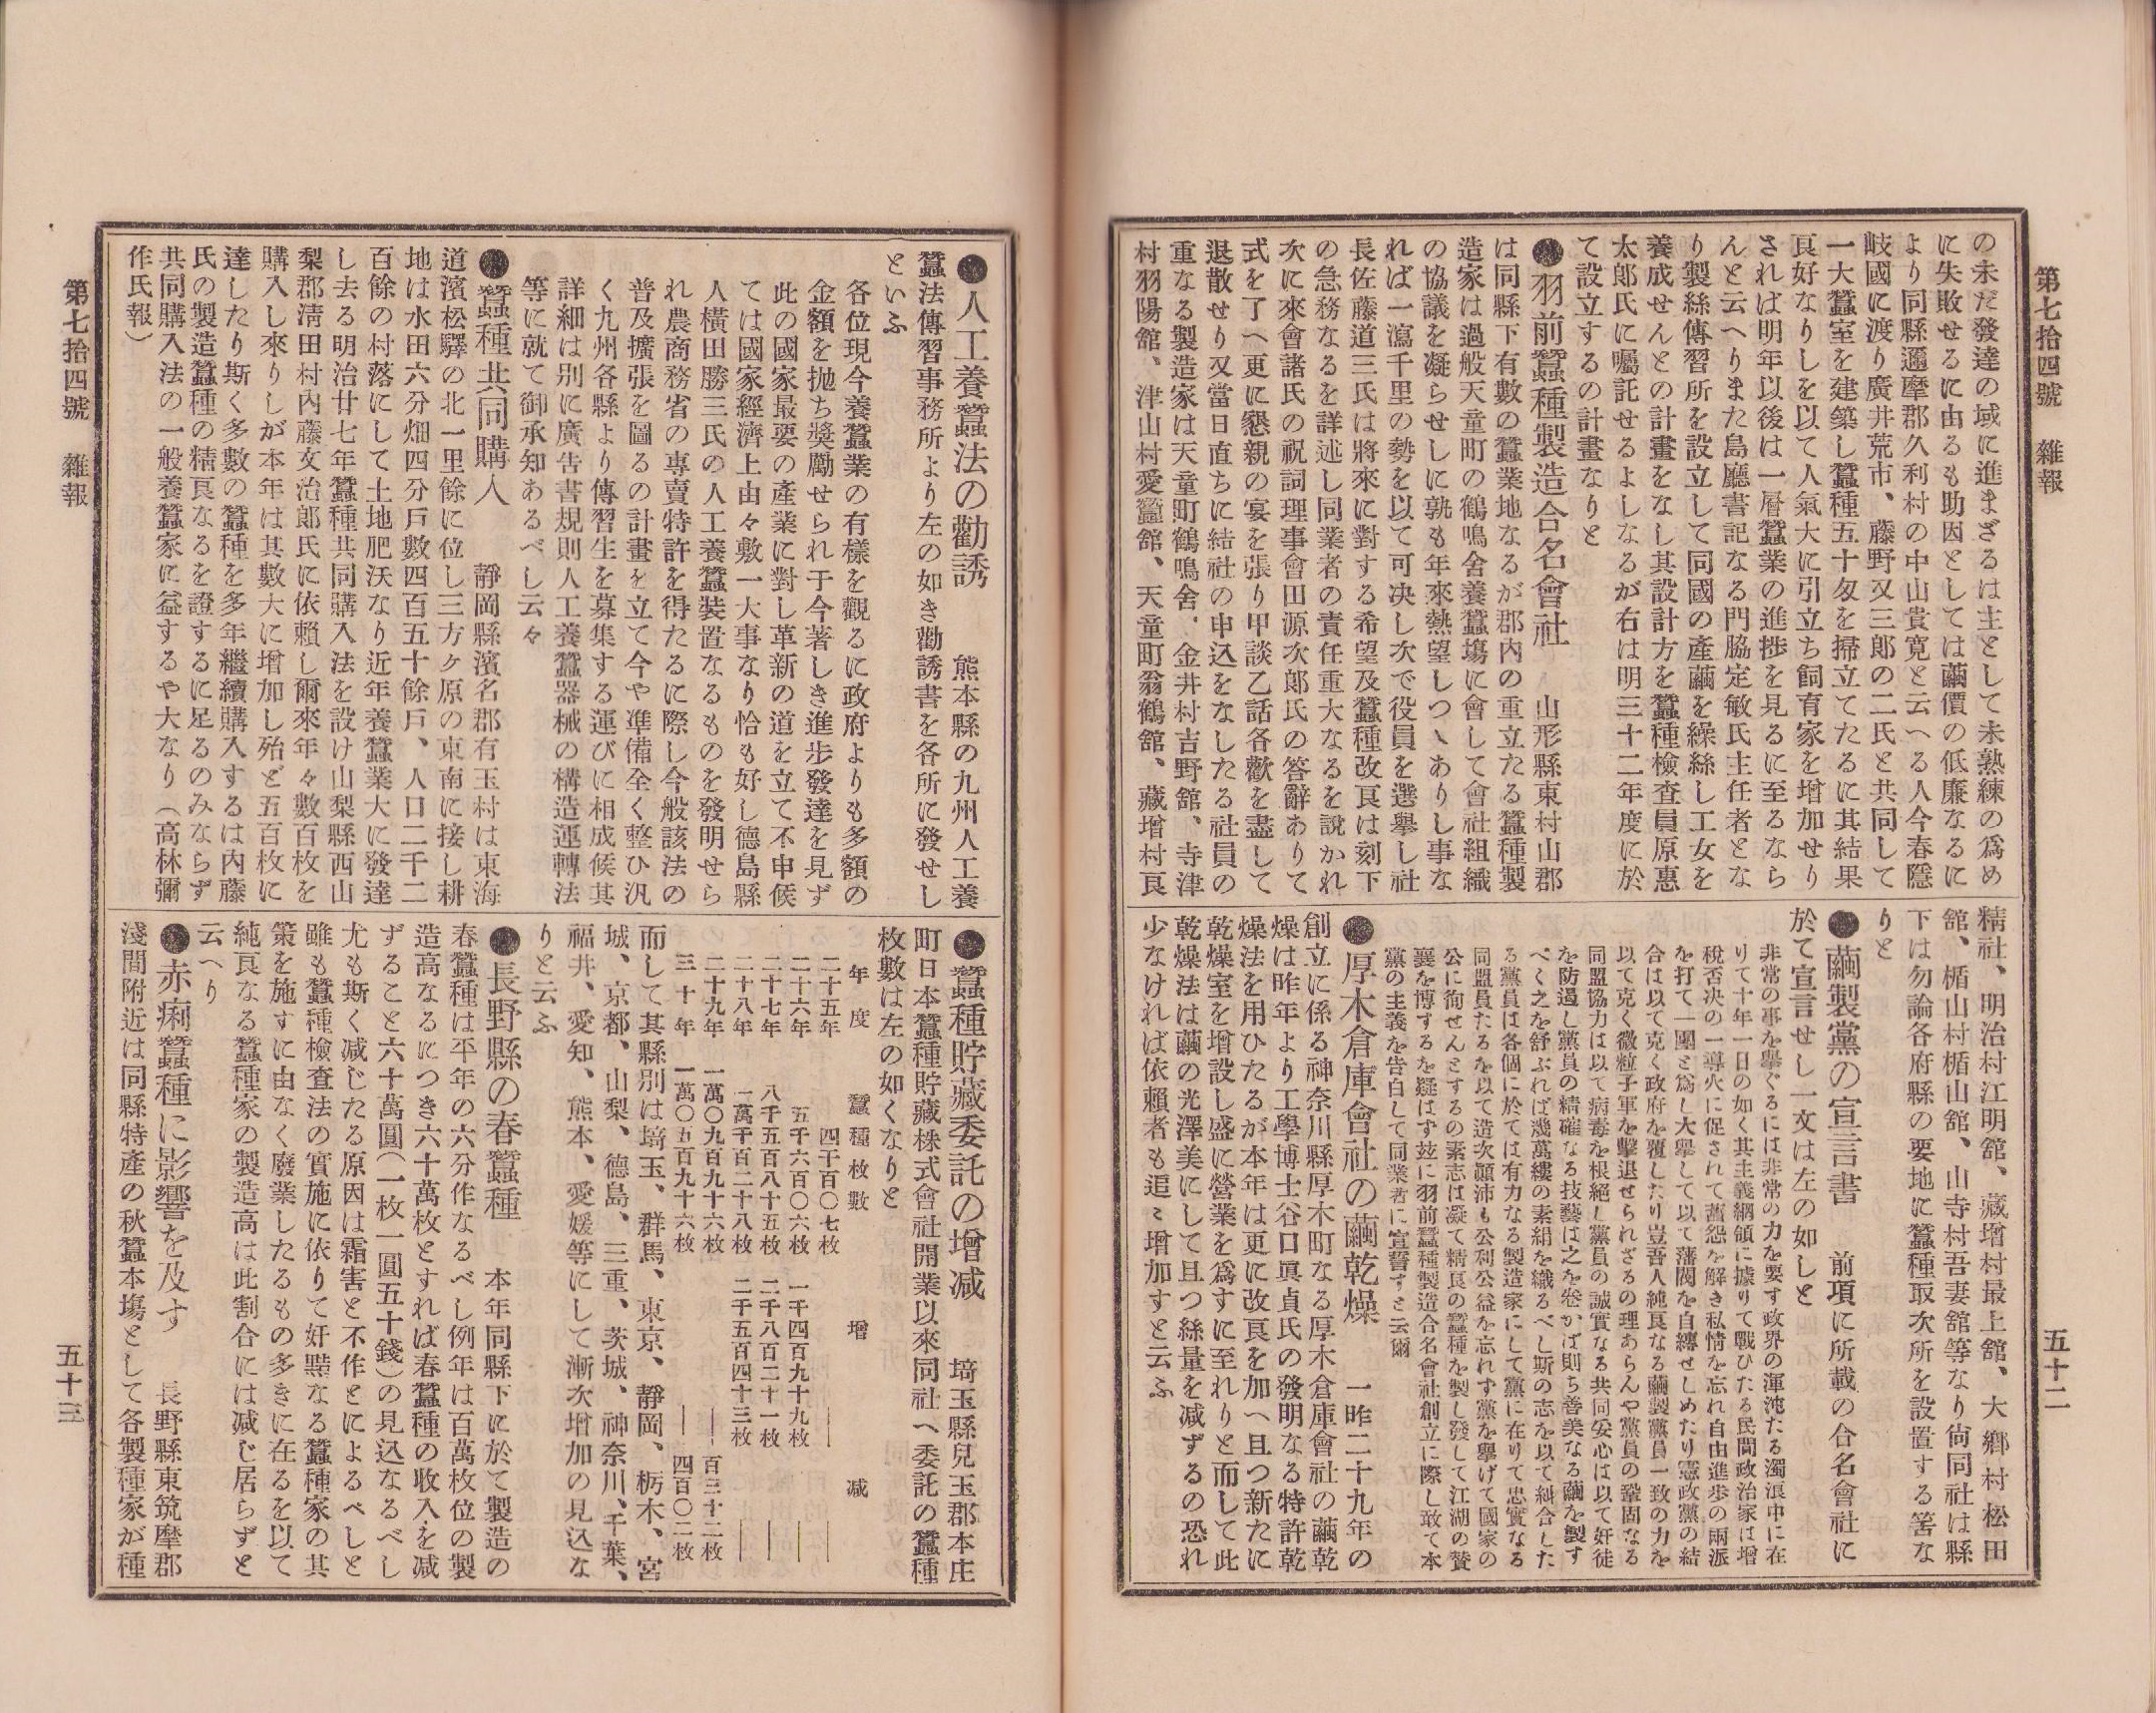 第七拾四號　雜報
五十二
の未だ發達の域に進まざるは主として未熟練の爲め
に失敗せるに由るも助因としては繭價の低廉なるに
より同縣邇摩郡久利村の中山貴寛と云へる人今春隱
岐國に渡り廣井荒市、藤野又三郎の二氏と共同して
一大蠶室を建築し蠶種五十匁を掃立てたるに其結果
良好なりしを以て人氣大に引立ち飼育家を增加せり
されば明年以後は一層蠶業の進捗を見るに至るなら
んと云へりまた島廳書記なる門脇定敏氏主任者とな
り製絲傳習所を設立して同國の產繭を繰絲し工女を
養成せんとの計畫をなし其設計方を蠶種檢查員原惠
太郎氏に囑託せるよしなるが右は明三十二年度に於
て設立するの計畫なりと
●羽前蠶種製造合名會社　山形縣東村山郡
は同縣下有數の蠶業地なるが郡內の重立たる蠶種製
造家は過般天童町の鶴鳴舍養蠶塲に會して會社組織
の協議を凝らせしに孰も年來熱望しつゝありし事な
れば一瀉千里の勢を以て可决し次で役員を選擧し社
長佐藤道三氏は將來に對する希望及蠶種改良は刻下
の急務なるを詳述し同業者の責任重大なるを說かれ
次に來會諸氏の祝詞理事會田源次郞氏の答辭ありて
式を了へ更に懇親の宴を張り甲談乙話各歡を盡して
退散せり又當日直ちに結社の申込をなしたる社員の
重なる製造家は天童町鶴鳴舍、金井村吉野舘、寺津
村羽陽舘、津山村愛蠶舘、天童町翁鶴舘、藏增村良
精社、明治村江明舘、藏增村最上舘、大鄕村松田
舘、楯山村楯山舘、山寺村吾妻舘等なり尙同社は縣
下は勿論各府縣の要地に蠶種取次所を設置する筈な
りと
●繭製黨の宣言書　前項に所載の合名會社に
於て宣言せし一文は左の如しと
非常の事を擧ぐるには非常の力を要す政界の渾沌たる濁浪中に在
りて十年一日の如く其主義綱領に據りて戰ひたる民間政治家は增
稅否決の一導火に促されて舊怨を解き私情を忘れ自由進步の兩派
を打て一團と爲し大擧して以て藩閥を自縛せしめたり憲政黨の結
合は以て克く政府を覆したり豈吾人純良なる繭製黨員一致の力を
以て克く微粒子軍を擊退せられざるの理あらんや黨員の鞏固なる
同盟協力は以て病毒を根絕し黨員の誠實なる共同安心は以て奸徒
を防遏し黨員の精確なる技藝は之を卷かば則ち善美なる繭を製す
べく之を舒ぶれば幾萬縷の素絹を織るべし斯の志を以て糾合した
る黨員は各個に於ては有力なる製造家にして黨に在りて忠實なる
同盟員たるを以て造次顚沛も公利公益を忘れず黨を擧げて國家の
公に徇せんとするの素志は凝て精良の蠶種を製し發して江湖の賛
襄を博するを疑はず玆に羽前蠶種製造合名會社創立に際し敢て本
黨の主義を告白して同業者に宣誓すと云爾
●厚木倉庫會社の繭乾燥　一昨二十九年の
創立に係る神奈川縣厚木町なる厚木倉庫會社の繭乾
燥は昨年より工學博士谷口眞貞氏の發明なる特許乾
燥法を用ひたるが本年は更に改良を加へ且つ新たに
乾燥室を增設し盛に營業を爲すに至れりと而して此
乾燥法は繭の光澤美にして且つ絲量を减ずるの恐れ
少なければ依賴者も追々增加すと云ふ
●人工養蠶法の勸誘　熊本縣の九州人工養
蠶法傳習事務所より左の如き勸誘書を各所に發せし
といふ
各位現今養蠶業の有樣を觀るに政府よりも多額の
金額を抛ち奬勵せられ于今著しき進步發達を見ず
此の國家最要の產業に對し革新の道を立て不申候
ては國家經濟上由々敷一大事なり恰も好し德島縣
人橫田勝三氏の人工養蠶裝置なるものを發明せら
れ農商務省の專賣特許を得たるに際し今般該法の
普及擴張を圖るの計畫を立て今や準備全く整ひ汎
く九州各縣より傳習生を募集する運びに相成候其
詳細は別に廣告書規則人工養蠶器械の構造運轉法
等に就て御承知あるべし云々
●蠶種共同購入　靜岡縣濱名郡有玉村は東海
道濱松驛の北一里餘に位し三方ヶ原の東南に接し耕
地は水田六分畑四分戶數四百五十餘戶、人口二千二
百餘の村落にして土地肥沃なり近年養蠶業大に發達
し去る明治廿七年蠶種共同購入法を設け山梨縣西山
梨郡淸田村內藤文治郞氏に依賴し爾來年々數百枚を
購入し來りしが本年は其數大に增加し殆ど五百枚に
達したり斯く多數の蠶種を多年繼續購入するは內藤
氏の製造蠶種の精良なるを證するに足るのみならず
共同購入法の一般養蠶家に益するや大なり（高林彌
作氏報）
●蠶種貯藏委託の增减　埼玉縣兒玉郡本庄
町日本蠶種貯藏株式會社開業以來同社へ委託の蠶種
枚數は左の如くなりと
年度　蠶種枚數　增　减
二十五年　四千百〇七枚　――　――
二十六年　五千六百〇六枚　一千四百九十九枚　――
二十七年　八千五百八十五枚　二千八百二十一枚　――
二十八年　一萬千百二十八枚　二千五百四十三枚　――
二十九年　一萬〇九百九十六枚　――　百三十二枚
三十年　一萬〇五百九十六枚　――　四百〇二枚
而して其縣別は埼玉、群馬、東京、靜岡、栃木、宮
城、京都、山梨、德島、三重、茨城、神奈川、千葉、
福井、愛知、熊本、愛媛等にして漸次增加の見込な
りと云ふ
●長野縣の春蠶種　本年同縣下に於て製造の
春蠶種は平年の六分作なるべし例年は百萬枚位の製
造高なるにつき六十萬枚とすれば春蠶種の收入を减
ずること六十萬圓（一枚一圓五十錢）の見込なるべし
尤も斯く减じたる原因は霜害と不作とによるべしと
雖も蠶種檢查法の實施に依りて奸黠なる蠶種家の其
策を施すに由なく廢業したるもの多きに在るを以て
純良なる蠶種家の製造高は此割合には减じ居らずと
云へり
●赤痢蠶種に影響を及す　長野縣東筑摩郡
淺間附近は同縣特產の秋蠶本塲として各製種家が種
第七拾四號　雜報
五十三